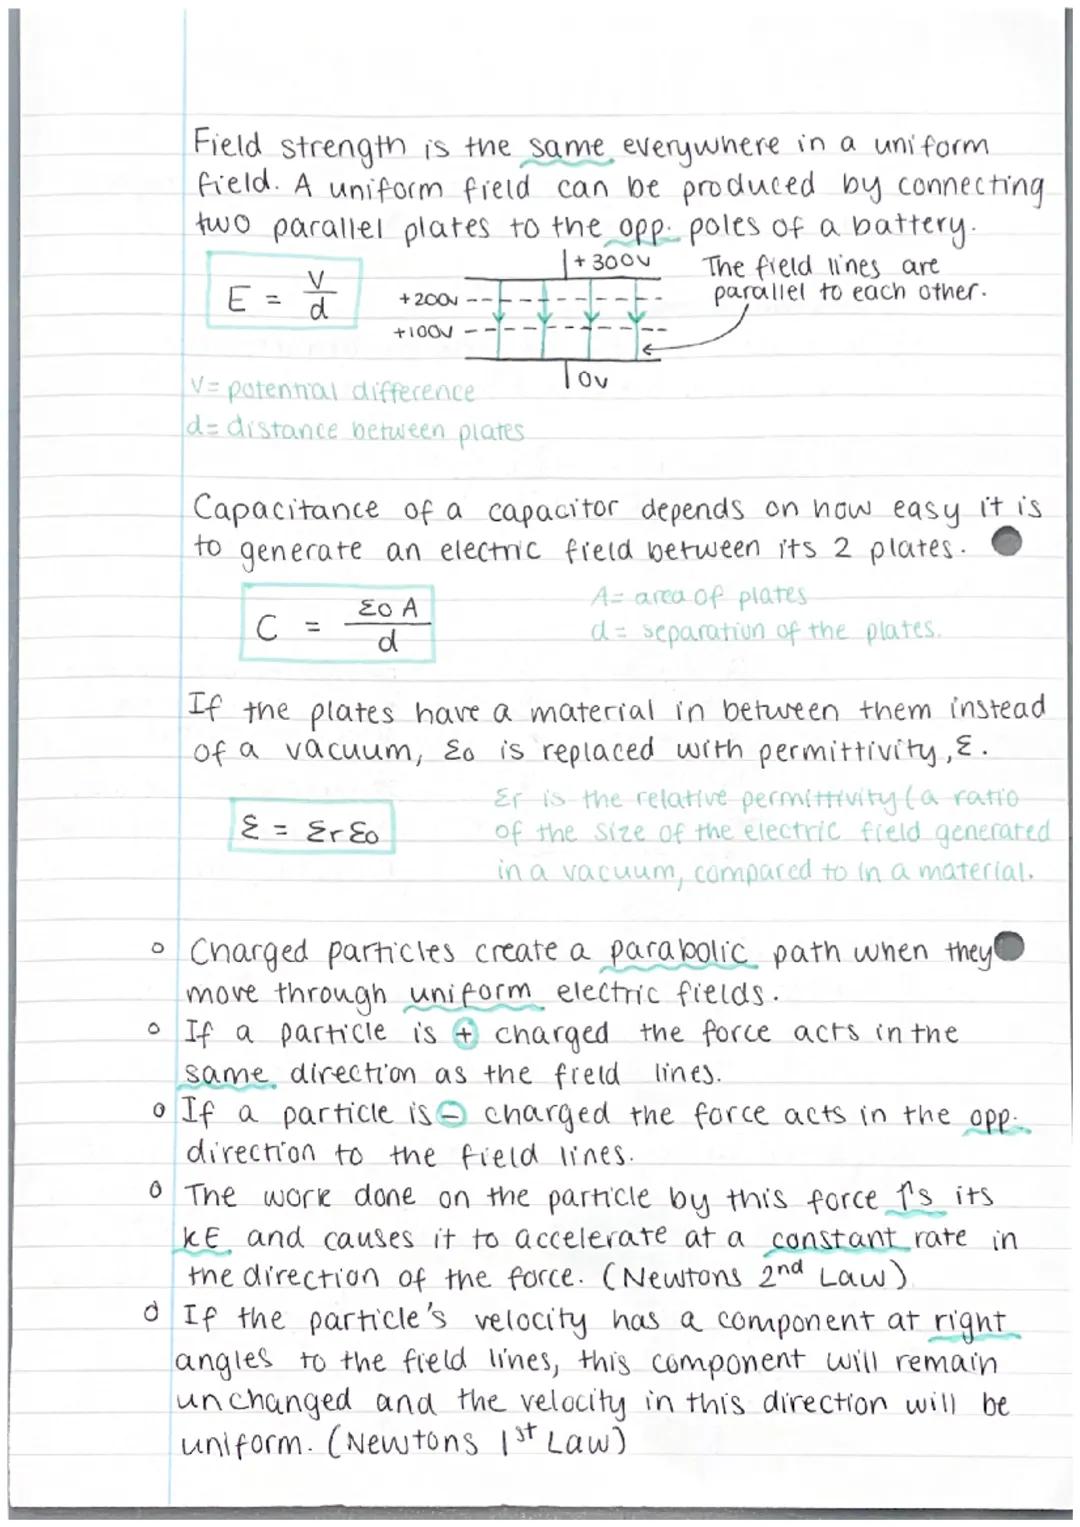 Field strength is the same everywhere in a uniform
field. A uniform field can be produced by connecting
two parallel plates to the opp. poles of a battery.
E = V/d
+300V
+200V
+100V
0V
The field lines are
parallel to each other.
V= potential difference
d= distance between plates
Capacitance of a capacitor depends on how easy it is
to generate an electric field between its 2 plates.
C = ε0 A / d
A= area of plates
d= separation of the plates.
If the plates have a material in between them instead
of a vacuum, ε0 is replaced with permittivity, ε.
ε = εr ε0
εr is the relative permittivity (a ratio
of the size of the electric field generated
in a vacuum, compared to in a material.
o Charged particles create a parabolic path when they
move through uniform electric fields.
o If a particle is + charged the force acts in the
same direction as the field lines.
o If a particle is - charged the force acts in the opp.
direction to the field lines.
o The work done on the particle by this force ↑'s its
KE and causes it to accelerate at a constant rate in
the direction of the force. (Newtons 2nd Law)
o If the particle's velocity has a component at right
angles to the field lines, this component will remain
unchanged and the velocity in this direction will be
uniform. (Newtons 1st Law)